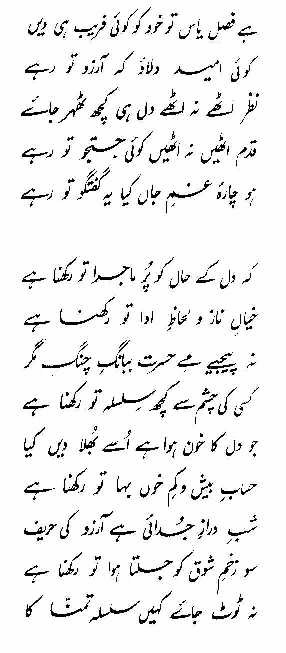 ہے فصلِ یاس تو خود کو کوئی فریب ہی دیں
کوئی امید دلاؤ کہ آرزو تو رہے
نظر اٹھے نہ اٹھے دل ہی کچھ ٹھہر جائے
قدم اٹھیں نہ اٹھیں کوئی جستجو تو رہے
ہو چارۂ غمِ جاں کیا یہ گفتگو تو رہے
کہ دل کے حال کو پُر ماجرا تو رکھنا ہے
خیالِ ناز و لحاظِ ادا تو رکھنا ہے
نہ پیجیے مے حسرت ببانگِ چنگ مگر
کسی کی چشم سے کچھ سِلسلہ تو رکھنا ہے
جو دل کا خون ہوا ہے اُسے بھُلا دیں کیا
حسابِ بیش و کمِ خوں بہا تو رکھنا ہے
شبِ درازِ جُدائی ہے آرزو کی حریف
سو زخمِ شوق کو جلتا ہوا تو رکھنا ہے
نہ ٹوٹ جائے کہیں سلسلہ تمنّا کا